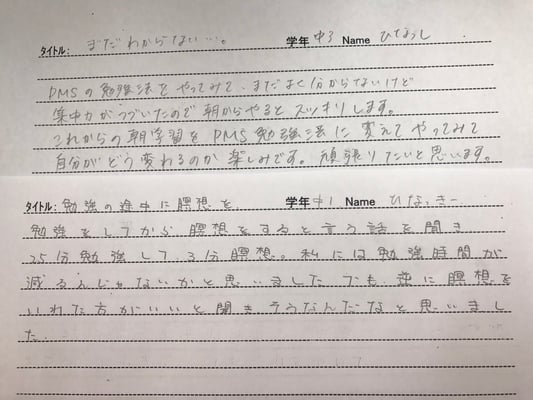 タイトル: まだわからない…。 学年 中3 Name ひなっし
PMSの勉強法をやってみて、まだよく分からないけど
集中力がつづいたので朝からやるとスッキリします。
これからの朝学習をPMS勉強法に変えてやってみて
自分がどう変わるのか楽しみです。頑張りたいと思います。
タイトル: 勉強の途中に瞑想を。 学年 中1 Name ひなっきー
勉強をしてから瞑想をすると言う話を聞き
25分勉強して、3分瞑想。私には勉強時間が
減るんじゃないかと思いました。でも、逆に瞑想を
いれた方がいいと聞きそうなんだなと思いまし
た.